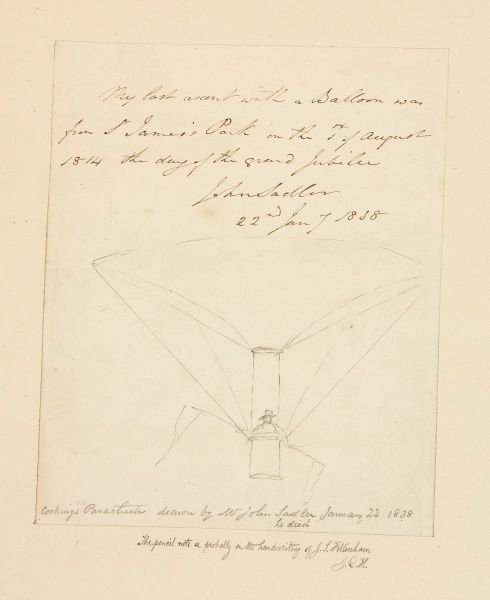 My last ascent with a Balloon was
from St James's Park on the 1st of August
1814 the day of the grand Jubilee
John Sadler
22nd Jany 1838
Cocking's Parachute drawn by Mr John Sadler January 22 1838
he died
The pencil note is probably in the handwriting of J. S. Fillenham
J.E.H.